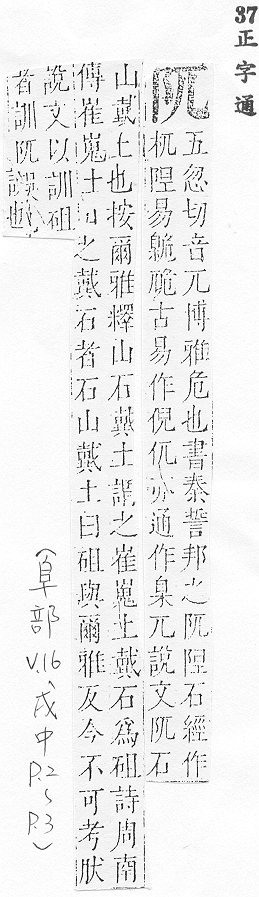 37正字通
阢
五忽切音兀博雅危也書秦誓邦之阢隉石經作
杌隉易臲卼古易作倪㐳亦通作臬兀說文阢石
山戴土也按爾雅釋山石戴土謂之崔嵬土戴石爲砠詩周南
傳崔嵬土山之戴石者石山戴土曰砠與爾雅反今不可考肰
說文以訓砠
者訓阢誤也
(阜部 V.16、戌中 P.2~P.3)